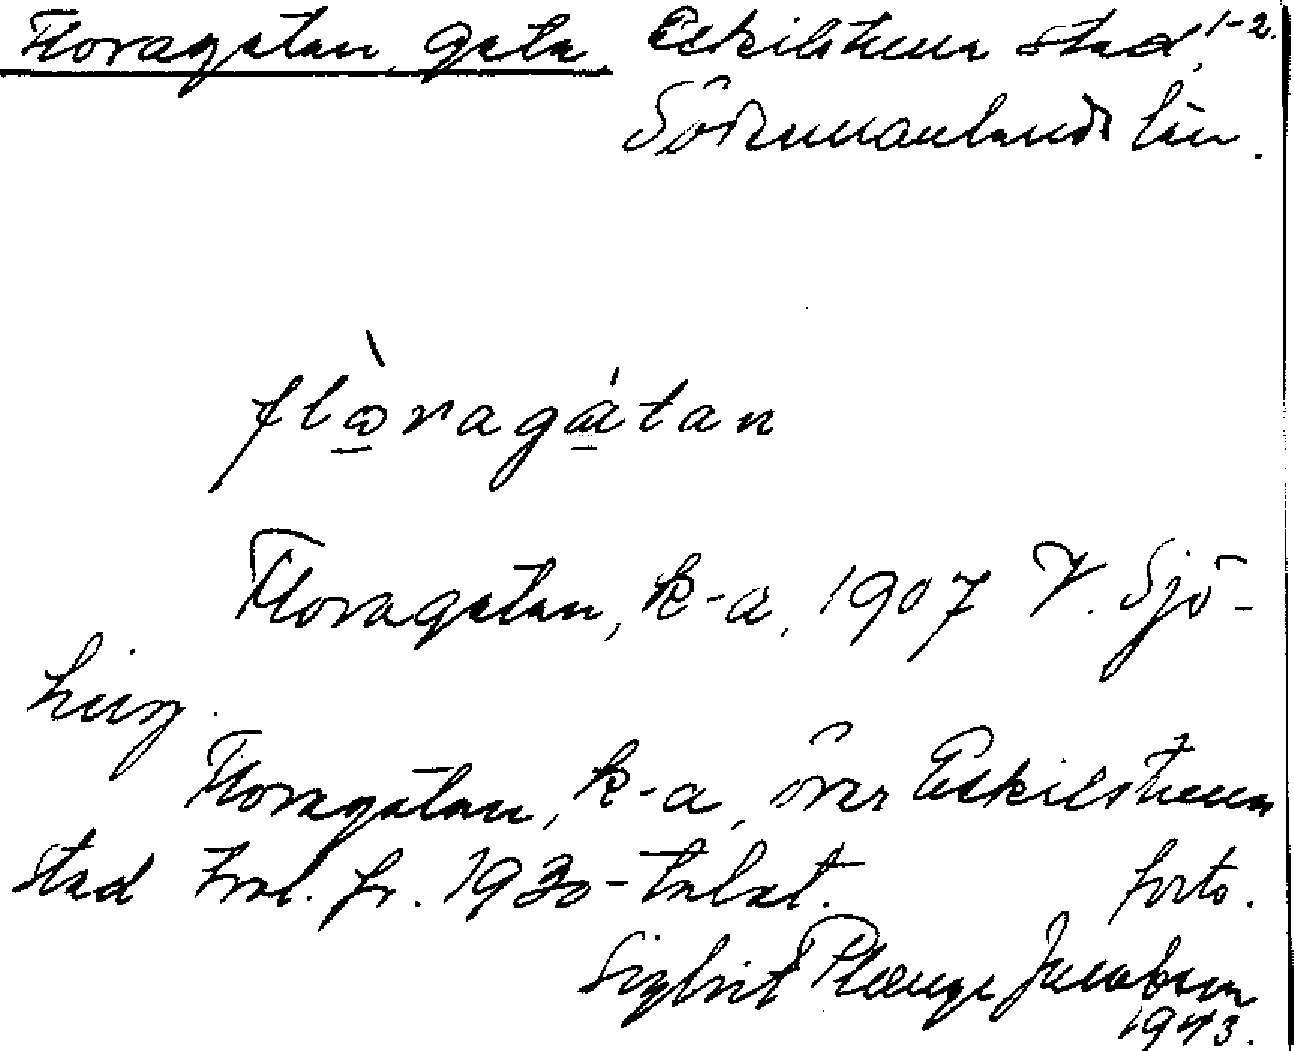 Floragatan, gata, Eskilstuna stad, 1-2.
Södermanlands län.
flòragátan
Floragatan, k-a, 1907 V. Sjö-
berg.
Floragatan, k-a, över Eskilstuna
stad Trol. fr. 1930-talet. forts.
Sigbrit Plænge Jacobson
1973.